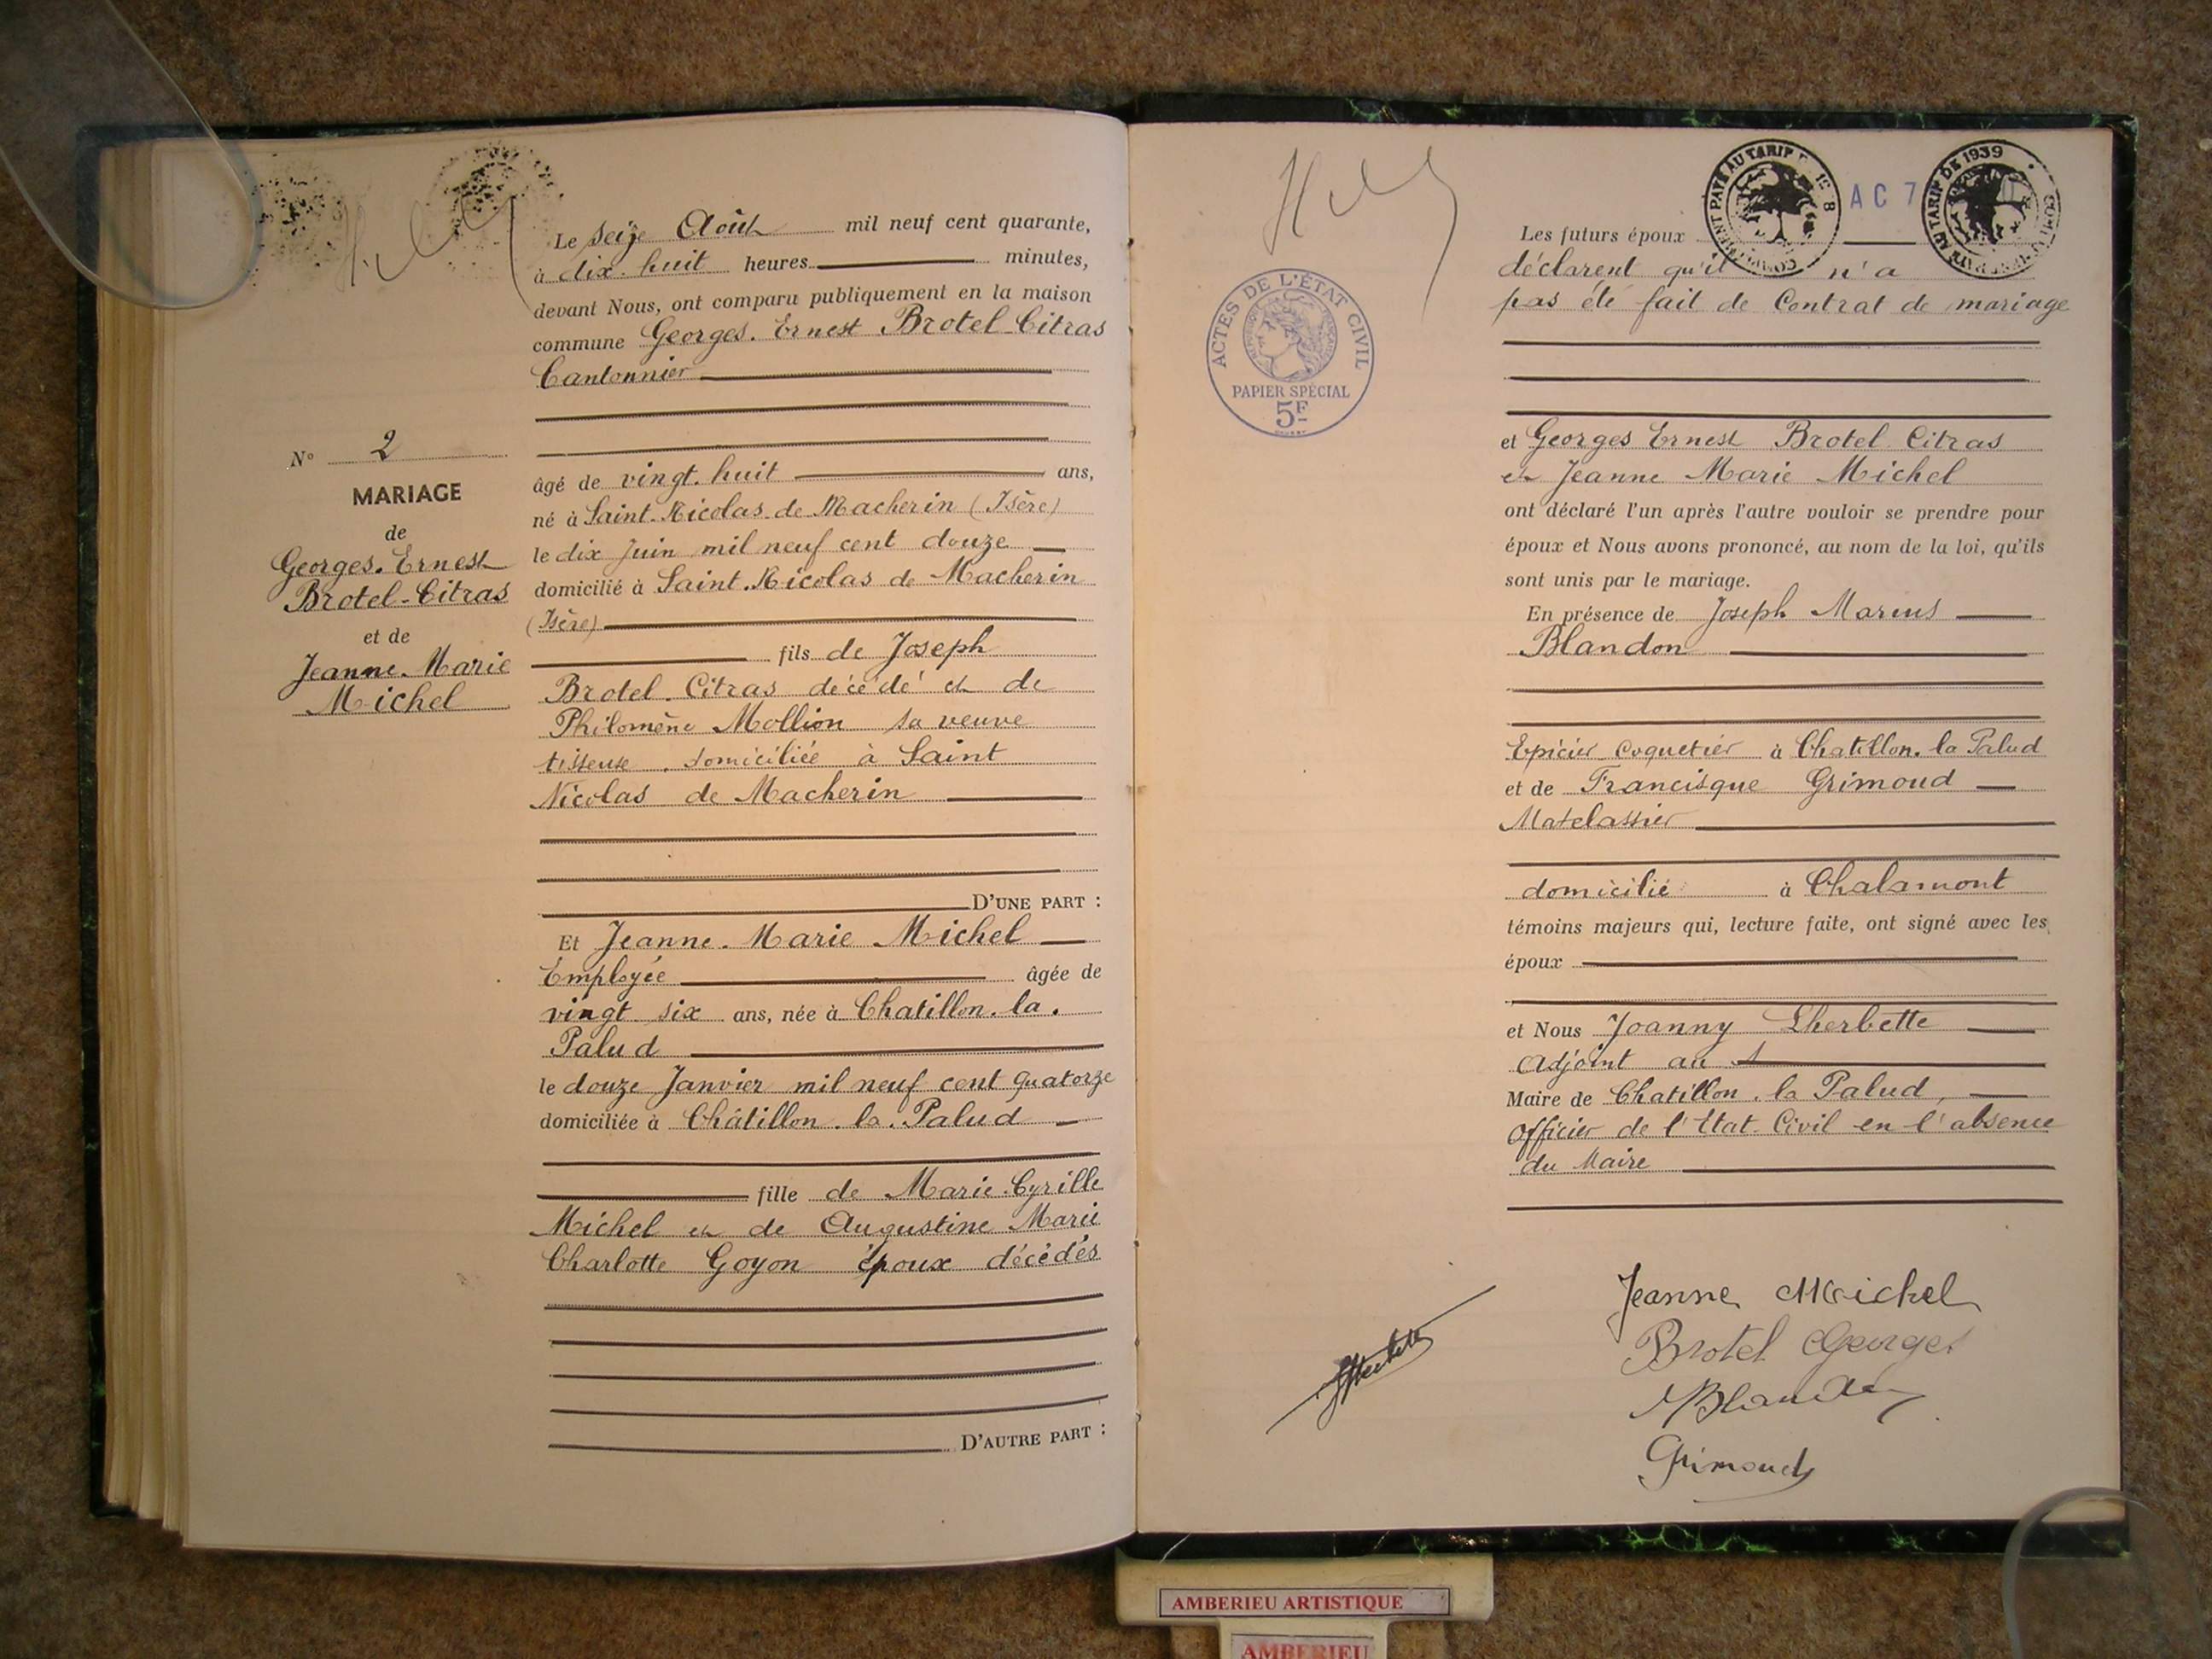 Le seize Août mil neuf cent quarante,
à dix-huit heures minutes,
devant Nous, ont comparu publiquement en la maison
commune Georges. Ernest Brotel-Citras
Cantonnier
N° 2
MARIAGE
de
Georges. Ernest
Brotel-Citras
et de
Jeanne. Marie
Michel
âgé de vingt. huit ans,
né à Saint-Nicolas-de Macherin (Isère)
le dix Juin mil neuf cent douze
domicilié à Saint.Nicolas de Macherin
(Isère)
fils de Joseph
Brotel-Citras décédé et de
Philomène Mollion sa veuve
tisseuse, domiciliée à Saint
Nicolas de Macherin
D'UNE PART :
Et Jeanne. Marie Michel
Employée âgée de
vingt six ans, née à Chatillon.la.
Palud
le douze Janvier mil neuf cent quatorze
domiciliée à Châtillon. la. Palud
fille de Marie.Cyrille
Michel et de Augustine Marie
Charlotte Goyon époux décédés
D'AUTRE PART :
COMPLÉMENT PAYÉ AU TARIF
AC 7
AU TARIF DE 1939
Les futurs époux
déclarent qu'il n'a
pas été fait de Contrat de mariage
ACTES DE L'ÉTAT CIVIL
PAPIER SPÉCIAL
5F
et Georges Ernest Brotel Citras
et Jeanne Marie Michel
ont déclaré l'un après l'autre vouloir se prendre pour
époux et Nous avons prononcé, au nom de la loi, qu'ils
sont unis par le mariage.
En présence de Joseph Marius
Blandon
Epicier Coquetier à Chatillon. la Palud
et de Francisque Grimoud
Matelassier
domicilié à Chalamont
témoins majeurs qui, lecture faite, ont signé avec les
époux
et Nous Joanny Lherbette
Adjoint au
Maire de Chatillon. la Palud,
Officier de l'Etat-Civil en l'absence
du Maire
Jeanne Michel
Brotel Georges
Blandon
Grimoud
AMBERIEU ARTISTIQUE
AMBERIEU